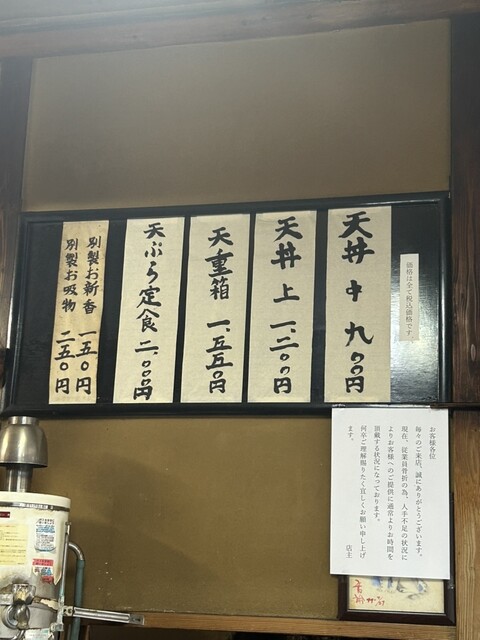 価格は全て税込価格です。
天丼 中 九〇〇円
天丼 上 一、二〇〇円
天重箱 一、五五〇円
天ぷら定食 二、〇〇〇円
別製お新香 一五〇円
別製お吸物 二五〇円
お客様各位
毎々のご来店、誠にありがとうございます。
現在、従業員骨折の為、人手不足の状況に
よりお客様へのご提供に通常よりお時間を
頂戴する状況になっております。
何卒ご理解賜りたく宜しくお願い申し上げ
ます。
店主